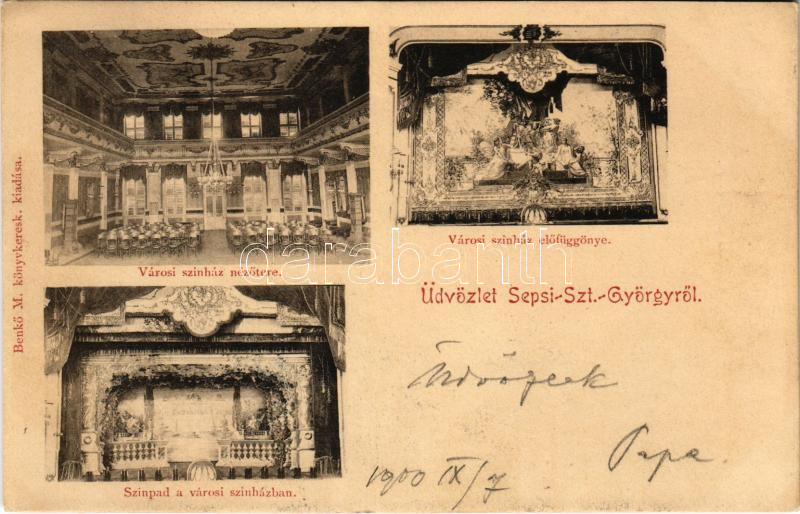 Benkő M. könyvkeresk. kiadása.
Városi szinház nézőtere.
Városi szinház előfüggönye.
Üdvözlet Sepsi-Szt.-Györgyről.
darabanth
Szinpad a városi szinházban.
Papa
1900 IX/7